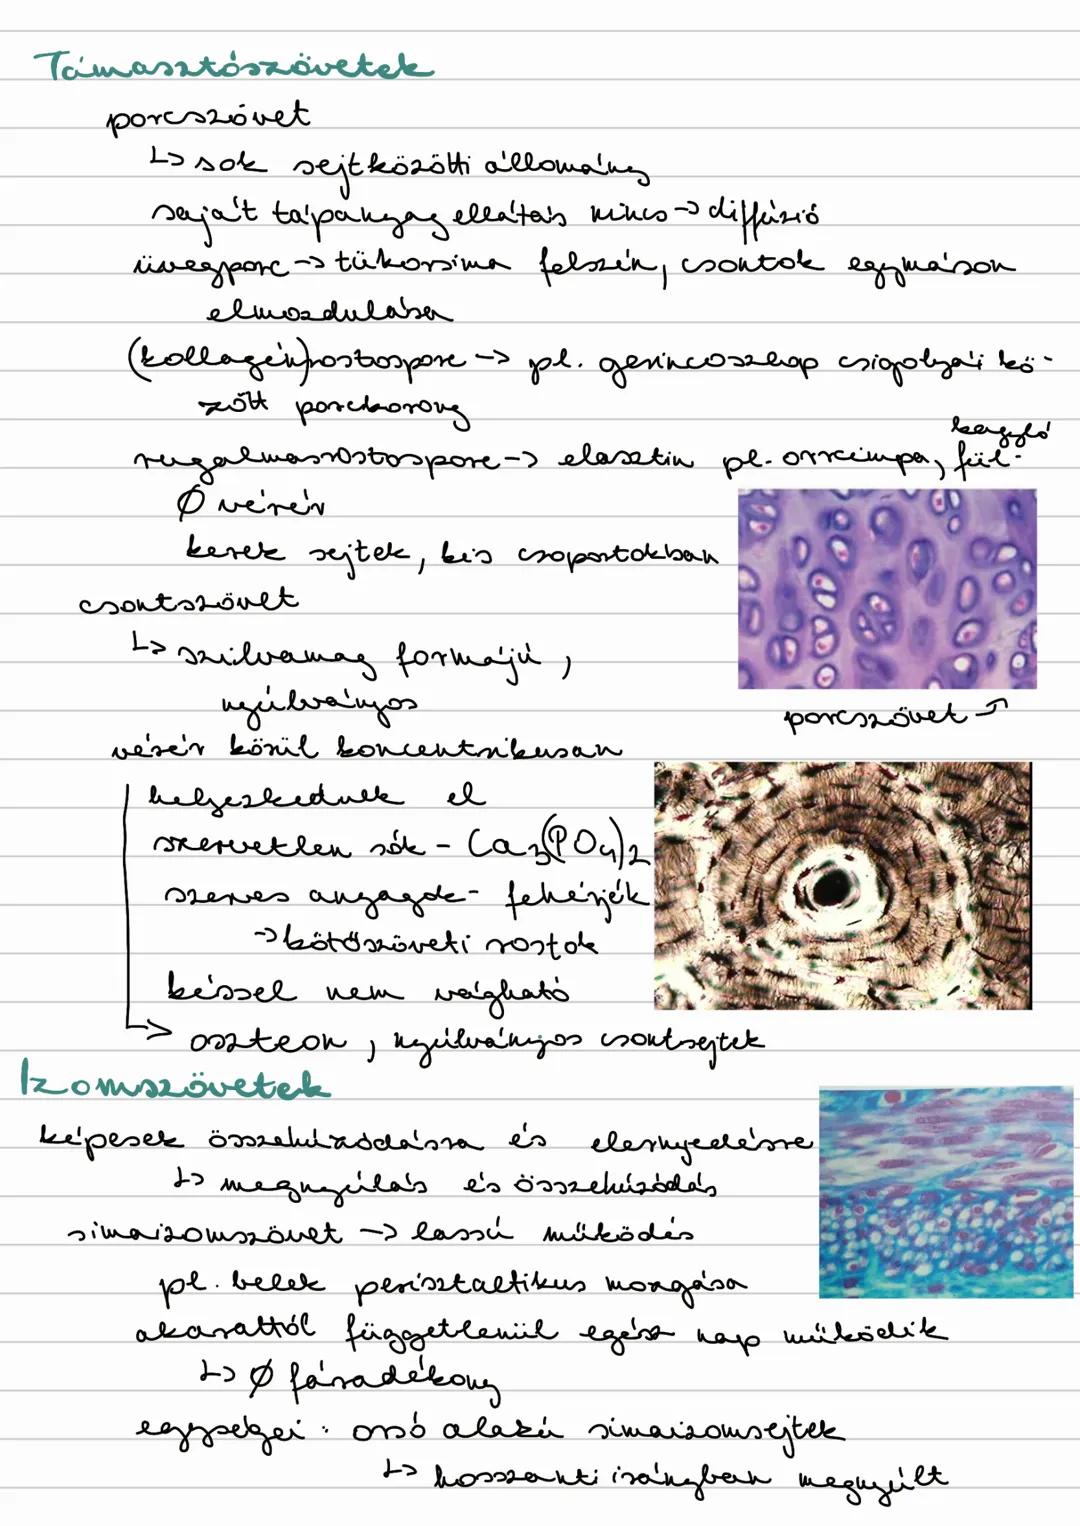 Támasztószövetek
porcszövet
↳ sok sejtközötti állomány
saját tápanyag ellátás nincs → diffúzió
üvegporc → tükörsima felszín, csontok egymáson
elmozdulása
(kollagén)rostosporc → pl. gerincoszlop csigolyái kö-
zött porckorong
rugalmasrostosporc → elasztin pl. orrcimpa, fül-
kagyló
Ø vérér
kerek sejtek, kis csoportokban
csontszövet
↳ szilvamag formájú,
nyúlványos
porcszövet
vérér körül koncentrikusan
helyezkednek el
szervetlen sók - Ca3(PO4)2
szerves anyagok - fehérjék
→ kötőszöveti rostok
késsel nem vágható
→ oszteon, nyúlványos csontsejtek
Izomszövetek
képesek összehúzódásra és elernyedésre
↳ megnyúlás és összehúzódás
simaizomszövet → lassú működés
pl. belek perisztaltikus mozgása
akarattól függetlenül egész nap működik
↳ Ø fáradékony
egységei: orsó alakú simaizomsejtek
↳ hosszanti irányban megnyúlt